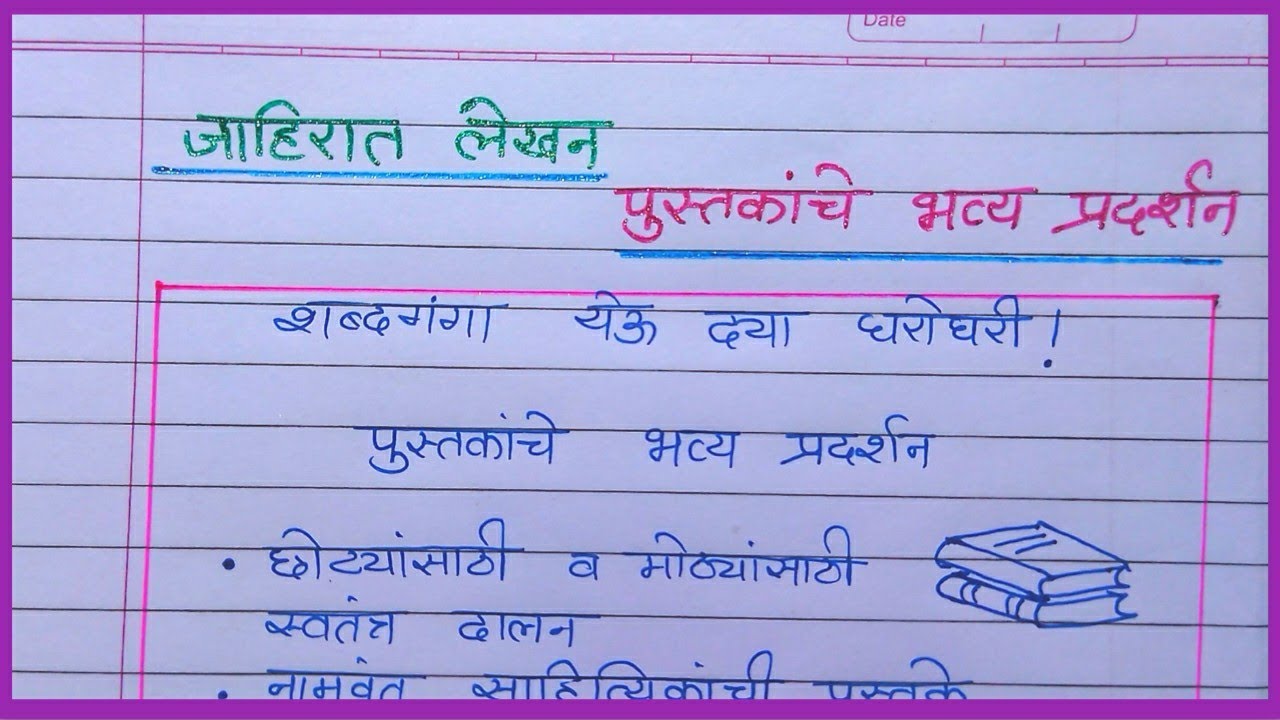 Date
जाहिरात लेखन
पुस्तकांचे भव्य प्रदर्शन
शब्दगंगा येऊ द्या घरोघरी!
पुस्तकांचे भव्य प्रदर्शन
• छोट्यांसाठी व मोठ्यांसाठी
स्वतंत्र दालन
• नामवंत साहित्यिकांची पुस्तके